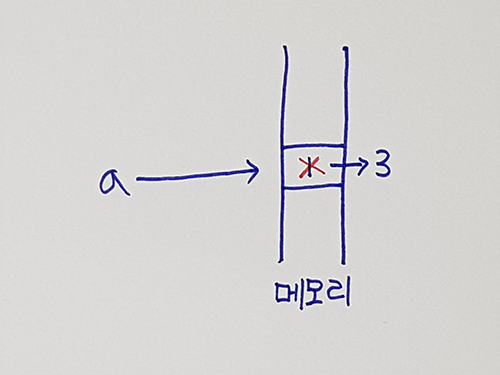 a 1 3
메모리